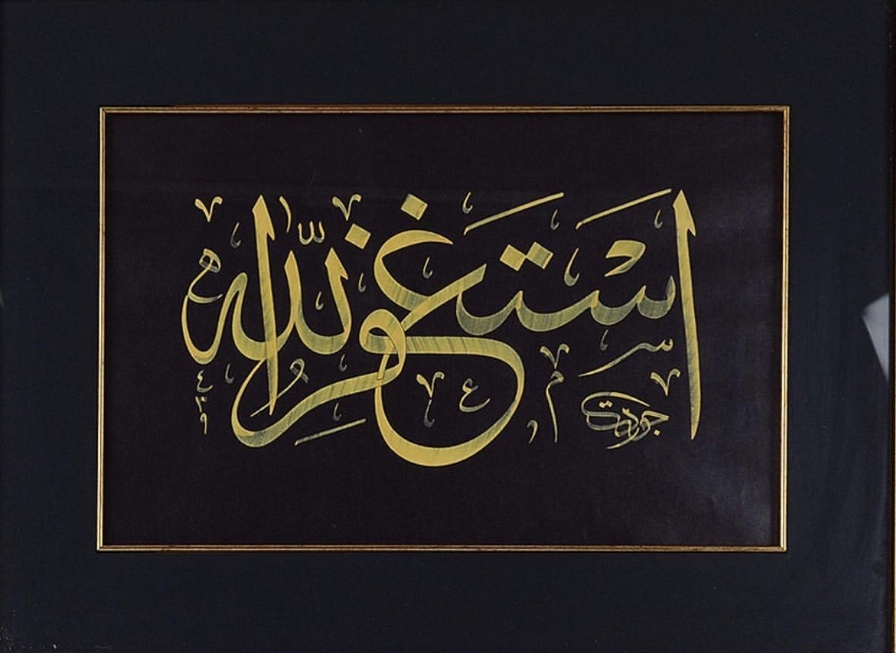 استغفر الله
جودت